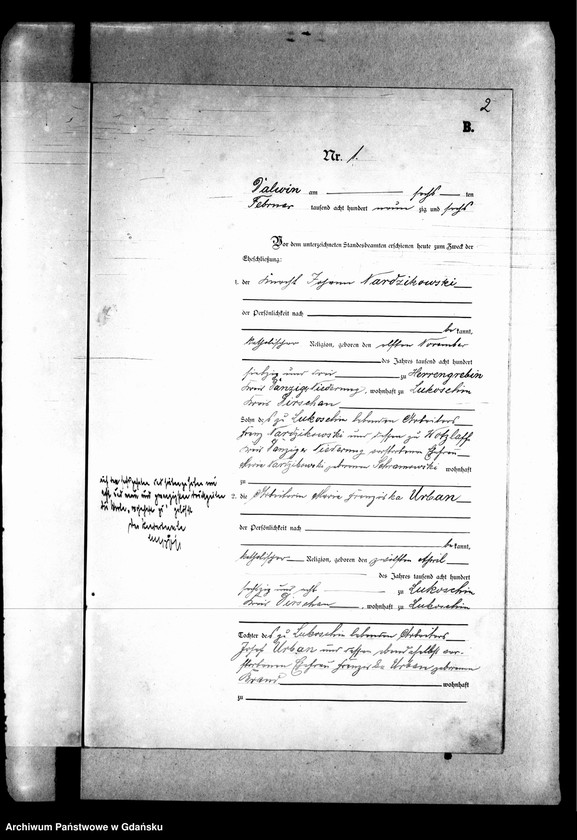 2
B.
Nr. 1.
Dalwin am sechs ten
Februar tausend acht hundert neun zig und sechs
Vor dem unterzeichneten Standesbeamten erschienen heute zum Zweck der
Eheschließung:
1. der Knecht Johann Nardzikowski
der Persönlichkeit nach
be kannt,
katholischer Religion, geboren den elften November
des Jahres tausend acht hundert
siebzig und drei zu Herrengrebin
Kreis Danziger Niederung, wohnhaft zu Lukoschin
Kreis Dirschau
Sohn des zu Lukoschin lebenden Arbeiters
Franz Nardzikowski und dessen zu Wotzlaff
Kreis Danziger Niederung verstorbenen Ehefrau
Nardzikowski geborenen wohnhaft
zu
2. die Arbeiterin Maria Franziska Urban
der Persönlichkeit nach
be kannt,
katholischer Religion, geboren den zwölften April
des Jahres tausend acht hundert
siebzig und acht zu Lukoschin
Kreis Dirschau, wohnhaft zu Lukoschin
Tochter des zu Lukoschin lebenden Arbeiters
Josef Urban und dessen daselbst ver-
storbenen Ehefrau Franziska Urban geborenen
wohnhaft
zu
Der Standesbeamte
Archiwum Państwowe w Gdańsku